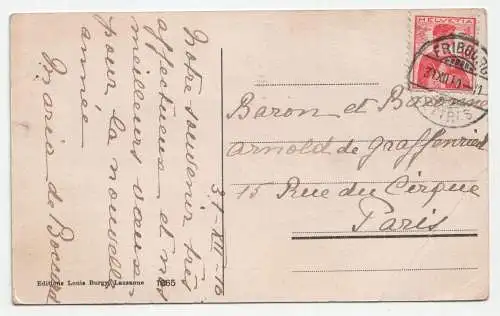 Notre souvenir très
affectueux et nos
meilleurs vœux
pour la nouvelle
année
Maria de
31-XII-10
HELVETIA
FRIBOURG
31.XII.10
Baron et Baronne
Arnold de Graffenried
15 Rue du Cirque
Paris
Editions Louis Burgy, Lausanne 1065